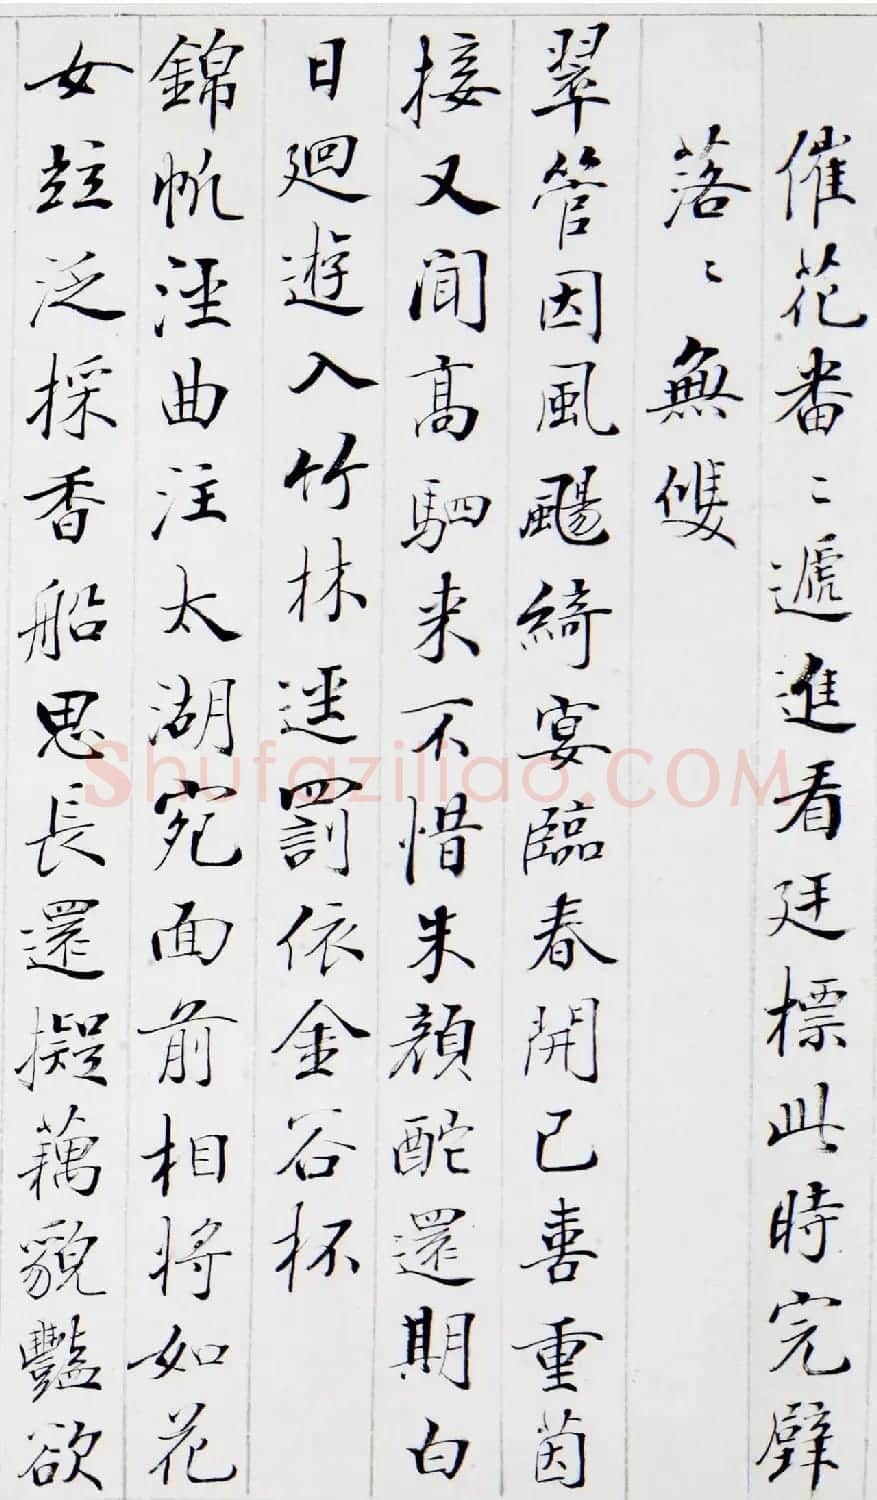 催花番〻遞進看廷標此時完璧
落〻無雙
翠管因風颺綺宴臨春開已喜重茵
接又闻高駟来不惜朱顔酡還期白
日廻遊入竹林逕罰依金谷杯
錦帆涇曲注太湖宛面前相将如花
女竝泛採香船思長還擬藕貌豔欲
Shufaziliao.COM